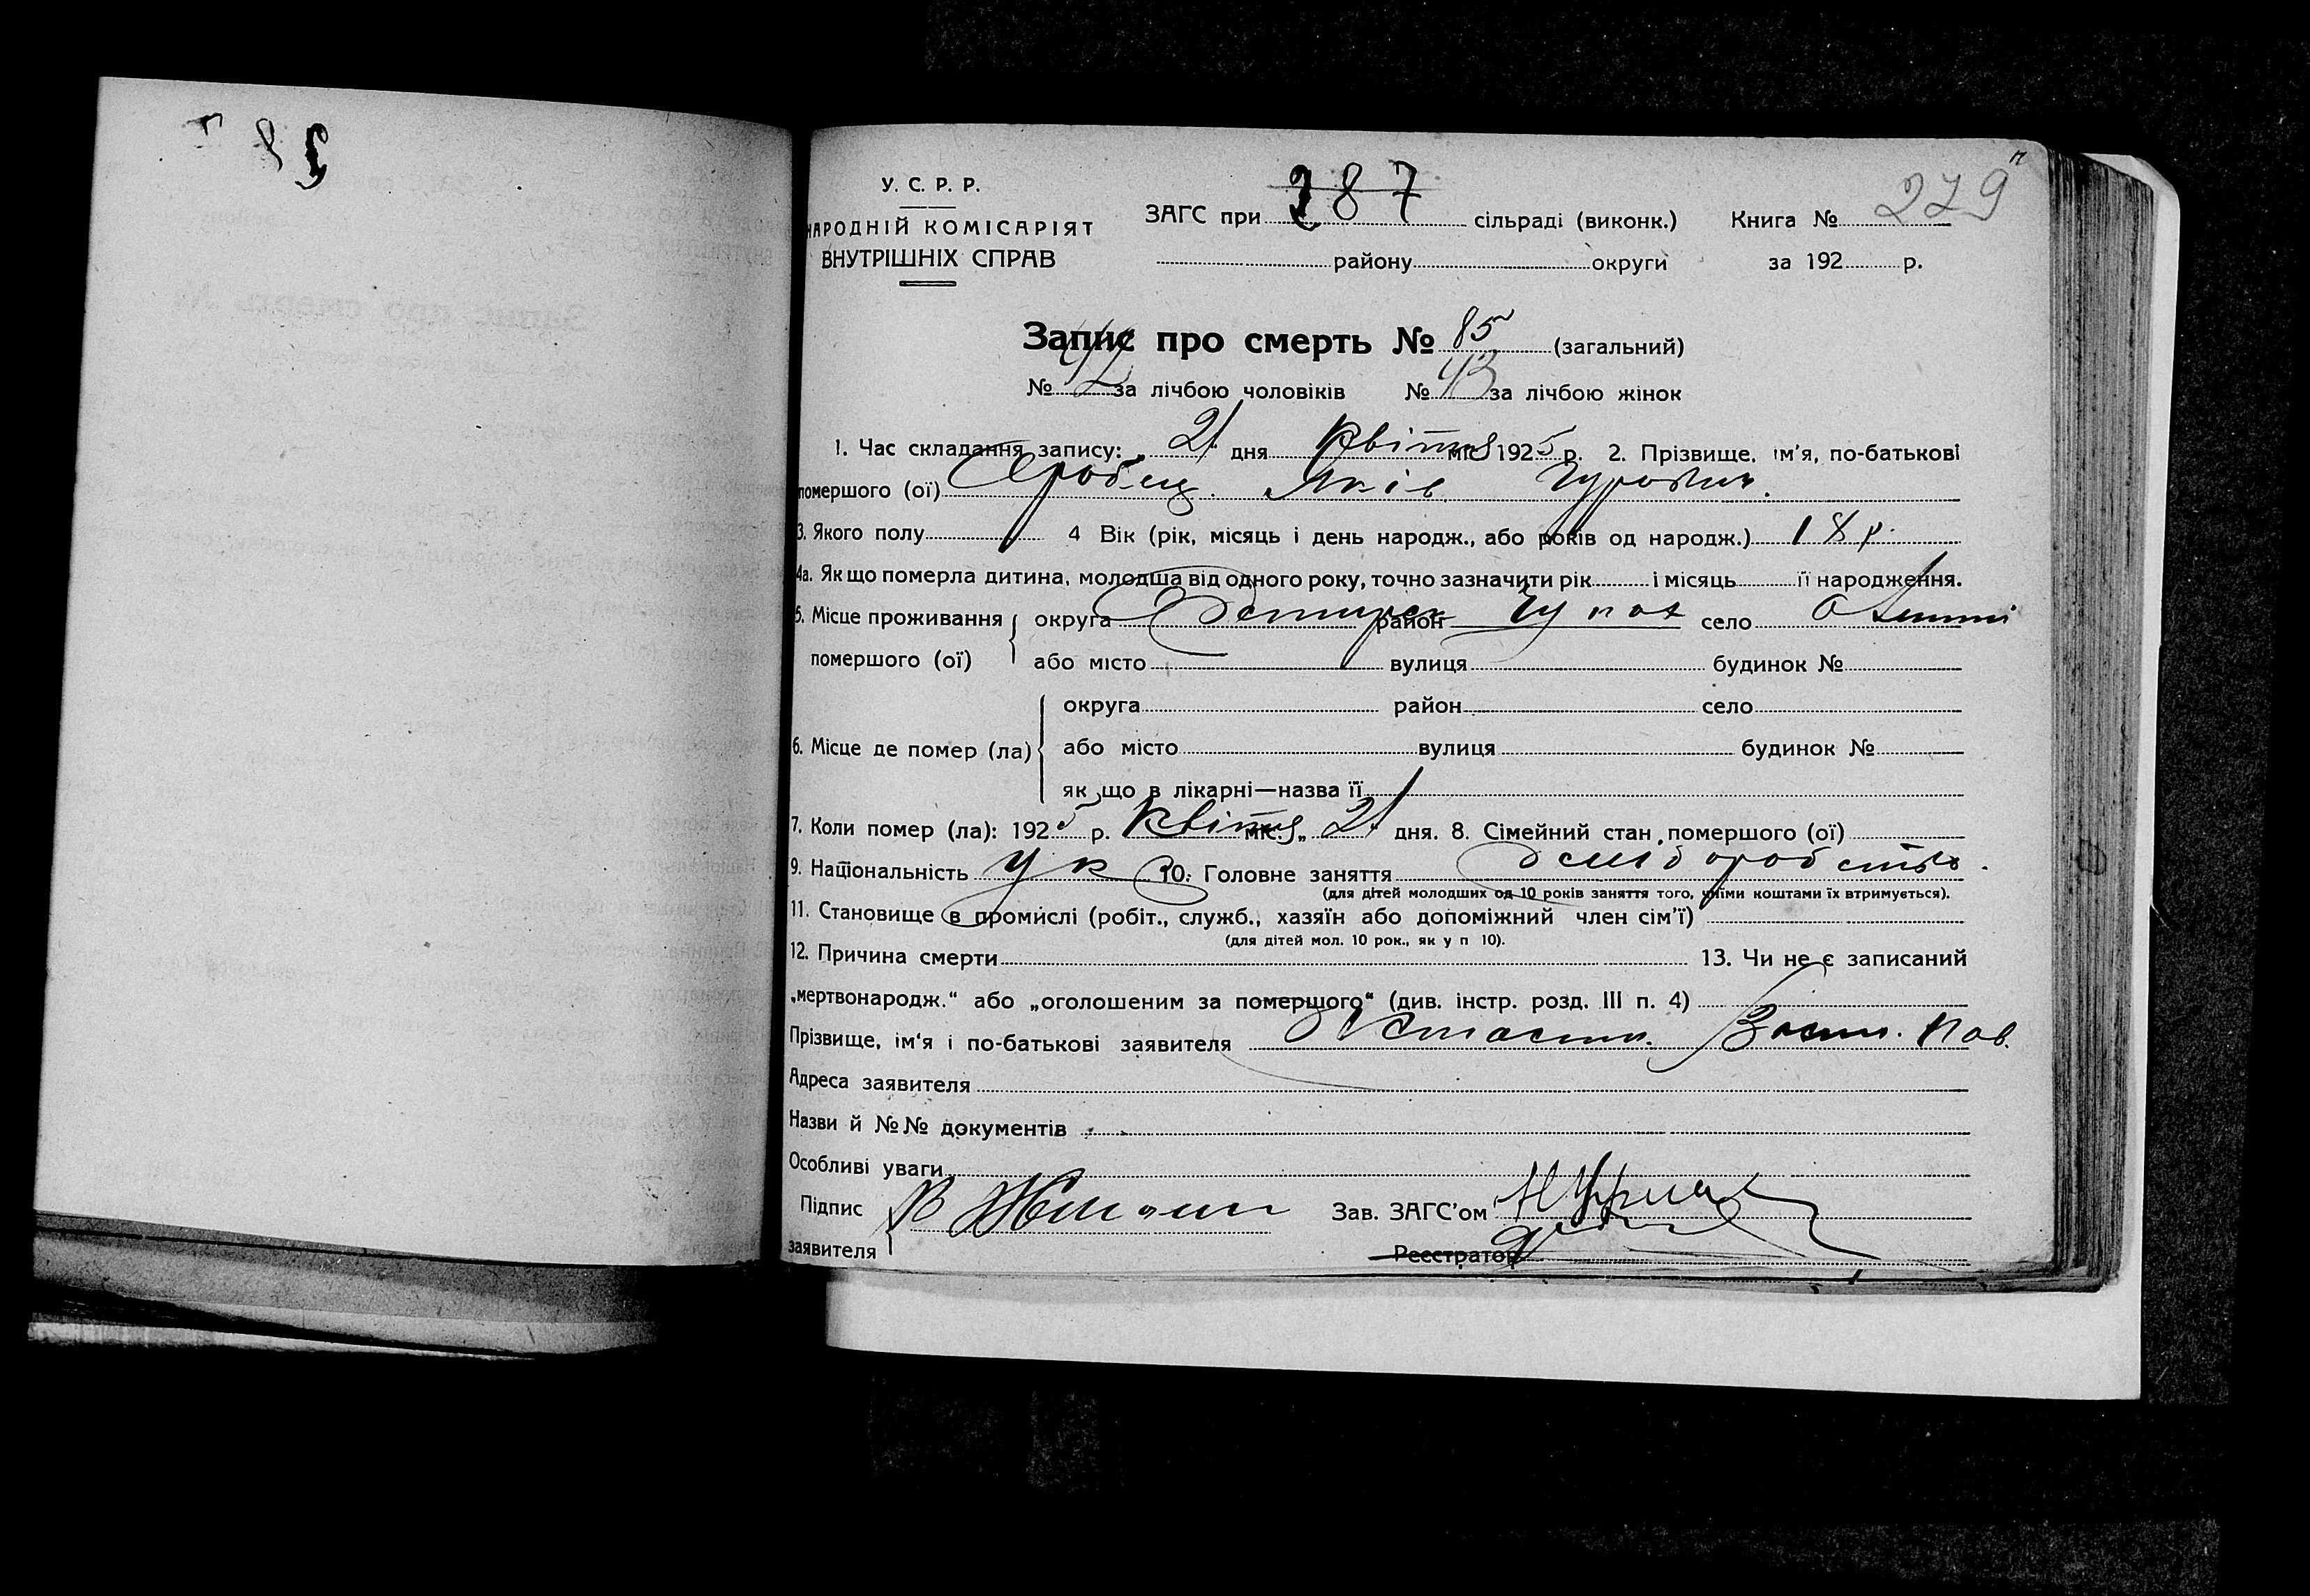 У. С. Р. Р.
НАРОДНІЙ КОМІСАРІЯТ
ВНУТРІШНІХ СПРАВ
ЗАГС при 287 сільраді (виконк.) Книга № 279
району округи за 192 р.
Запис про смерть № 85 (загальний)
№ 42 за лічбою чоловіків № 43 за лічбою жінок
1. Час складання запису: 21 дня Квітня міс. 1925 р. 2. Прізвище, ім'я, по-батькові
помершого (ої) Яків
3. Якого полу 4 Вік (рік, місяць і день народж., або років од народж.) 18 р.
4а. Як що померла дитина, молодша від одного року, точно зазначити рік і місяць її народження.
5. Місце проживання округа район село
помершого (ої) або місто вулиця будинок №
округа район село
6. Місце де помер (ла) або місто вулиця будинок №
як що в лікарні—назва її
7. Коли помер (ла): 1925 р. Квітня міс. „ 21 дня. 8. Сімейний стан помершого (ої)
9. Національність Ук 10. Головне заняття
(для дітей молодших од 10 років заняття того, чиїми коштами їх втримується).
11. Становище в промислі (робіт., служб., хазяїн або допоміжний член сім'ї)
(для дітей мол. 10 рок., як у п 10).
12. Причина смерти 13. Чи не є записаний
„мертвонародж.“ або „оголошеним за помершого“ (див. інстр. розд. III п. 4)
Прізвище, ім'я і по-батькові заявителя Пав.
Адреса заявителя
Назви й №№ документів
Особливі уваги
Підпис Зав. ЗАГС'ом
заявителя Реєстратор